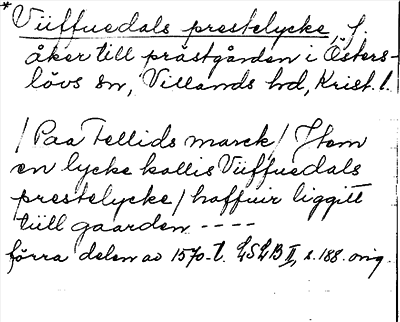 * Vüffuedals prestelycke, f.
åker till prästgården i Östers-
lövs sn, Villands hd, Krist. l.
/Paa Fellids marck/ Item
en lycke kallis Vüffuedals
prestelycke/ haffuir liggitt
tüll gaarden ----
förra delen av 1570-t. LSLB II, s. 188. orig.